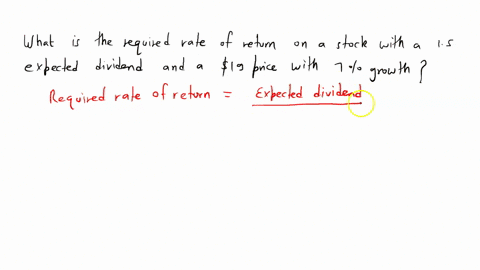 What is the required rate of return on a stock with a 1.5
expected dividend and a $19 price with 7% growth?
Required rate of return = Expected dividend